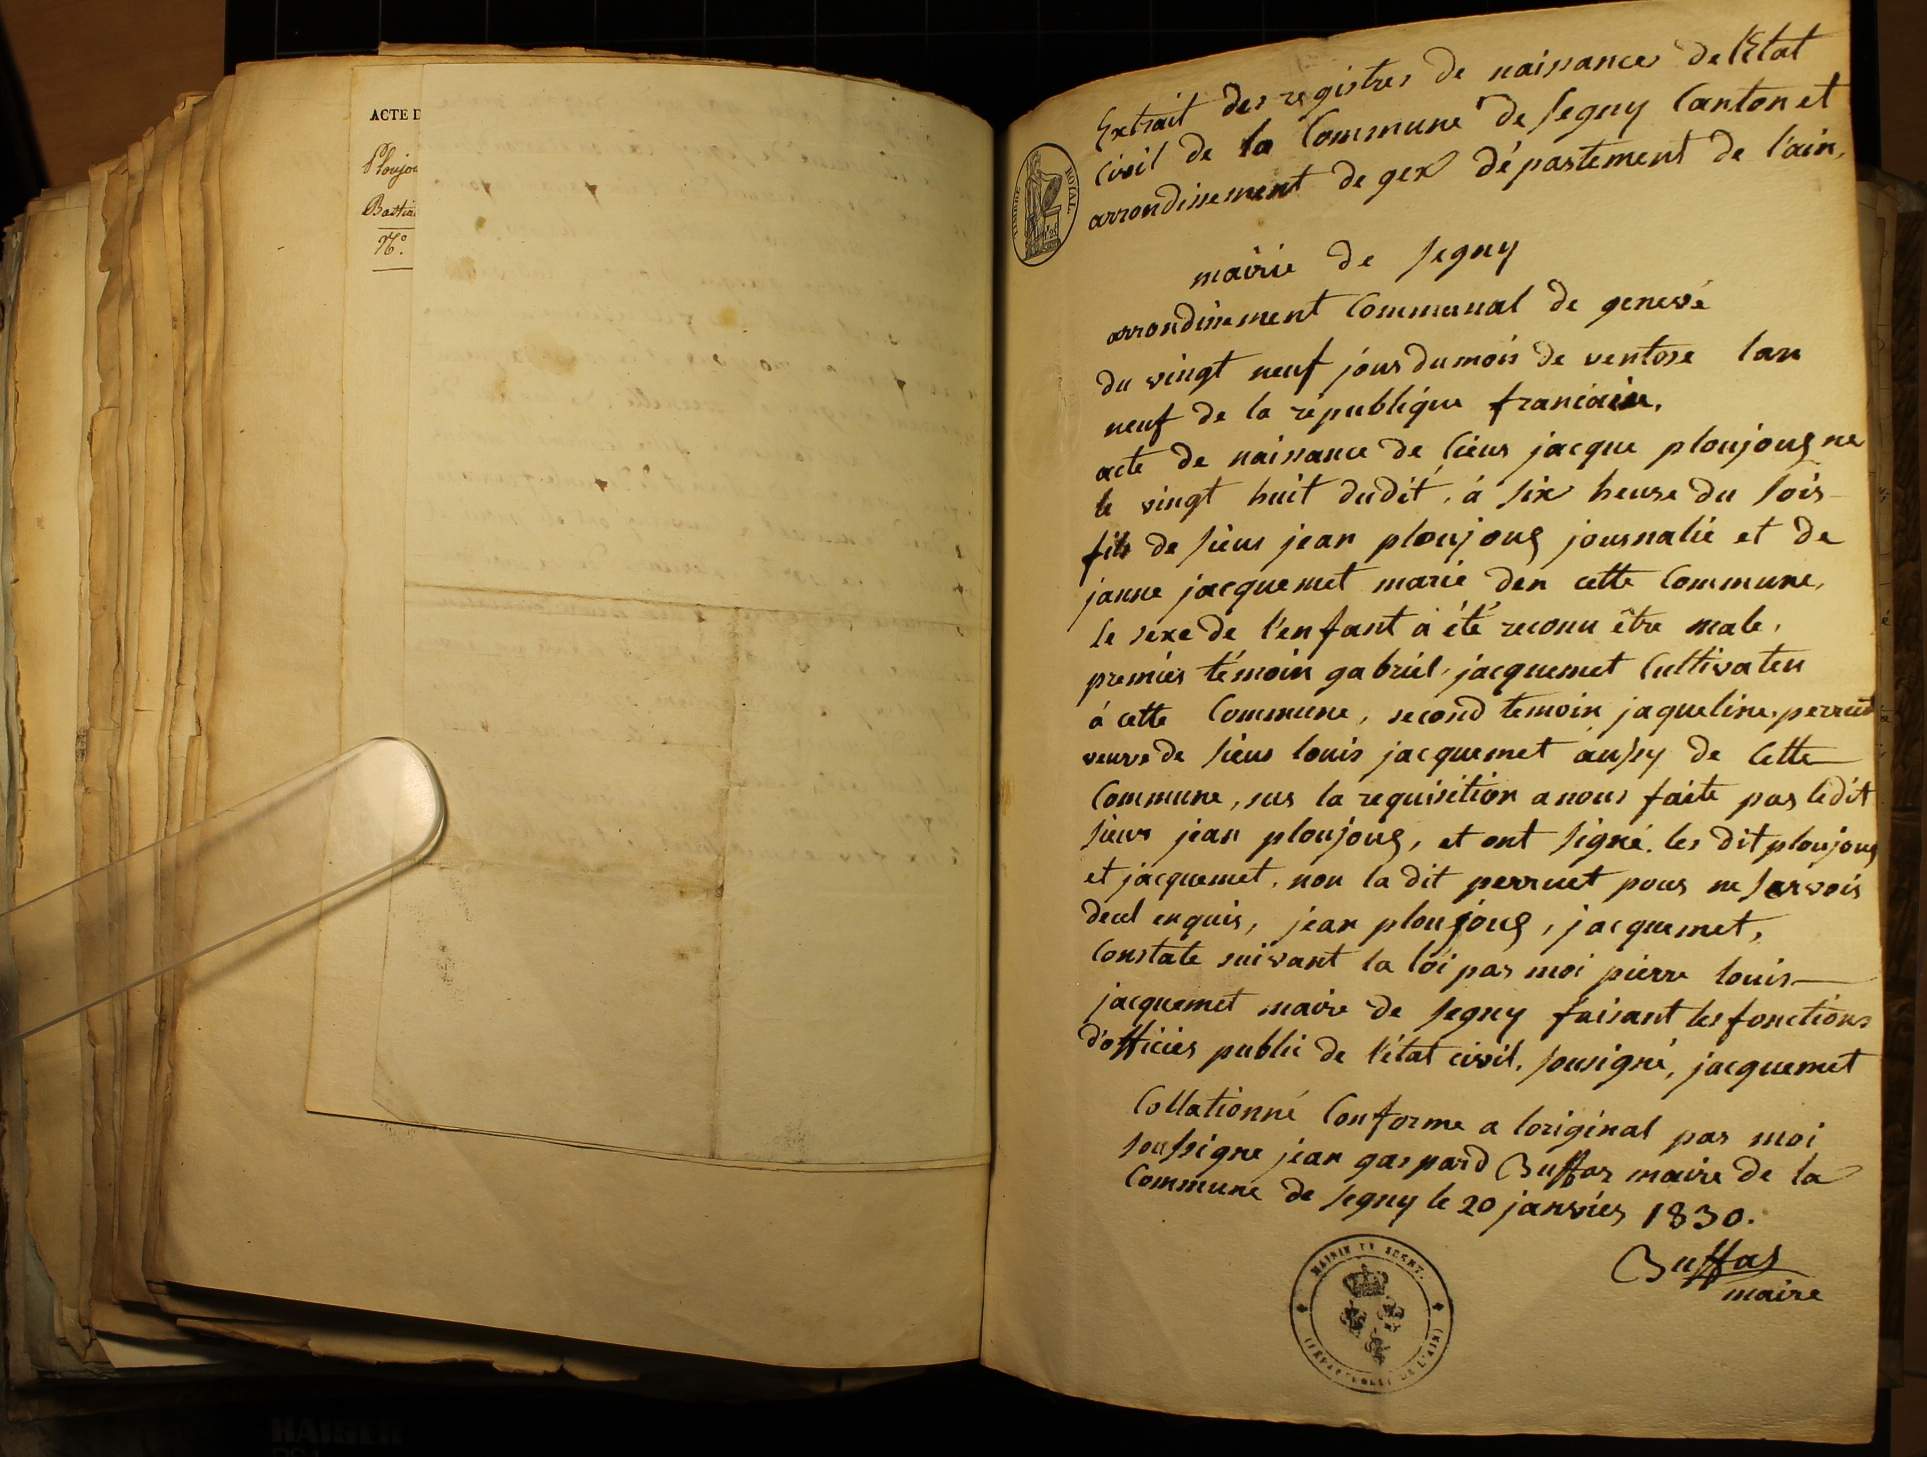 ACTE D
Ploujou
Bastia
N.º
Extrait des registres de naissances de l'Etat
Civil de la Commune de Segny Canton et
arrondissement de gex département de l'ain,
TIMBRE ROYAL
mairie de Segny
arrondissement Communal de genevé
du vingt neuf jour du mois de ventose lan
neuf de la république francaise,
acte de naissance de Cieur jacque ploujoug ne
le vingt huit dudit, á six heure du soir
fils de sieur jean ploujoug journalié et de
janne jacquemet marié den cette Commune,
le sexe de l'enfant a été reconu être male,
premier témoin gabriel, jacquemet Cultivateu
á cette Commune, second temoin jaqueline perruet
veuve de sieur louis jacquemet aussy de Cette
Commune, sur la requisition a nous faite par ledit
sieur jean ploujoug, et ont signé. les dit ploujoug
et jacquemet, non la dit perruet pour ne savoir
deul enquis, jean ploujoug, jacquemet,
Constate suivant la loi par moi pierre louis
jacquemet maire de segny faisant les fonctions
d'officier public de l'état civil, sousigné, jacquemet
Collationné Conforme a loriginal par moi
soussigne jean gaspard Buffaz maire de la
Commune de segny le 20 janvier 1830.
Buffaz
maire
MAIRIE DE SEGNY.
(DÉPARTEMENT DE L'AIN)